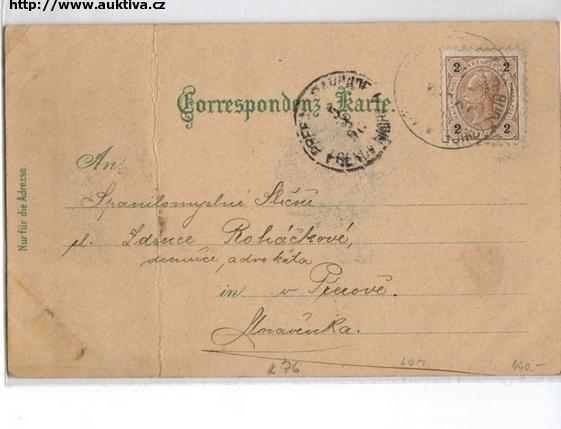 http://www.auktiva.cz
2 2
2 2
Correspondenz-Karte.
An
Spanilomyslné Slečně
pl. Zdence Roháčkové,
dcerušce advokáta
in v Přerově.
Moravěnka.
Nur für die Adresse
k 76
LOM
440.-